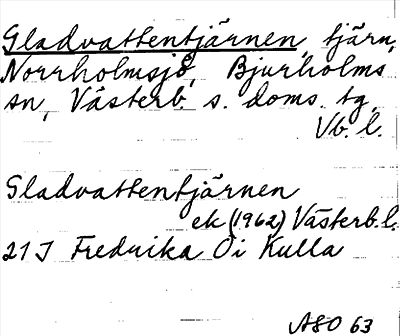 Gladvattentjärnen, tjärn,
Norrholmsjö, Bjurholms
sn, Västerb. s. doms. tg,
Vb. l.
Gladvattentjärnen
ek (1962) Västerb. l.
21 J Fredrika Ö i Kulla
ASO 63